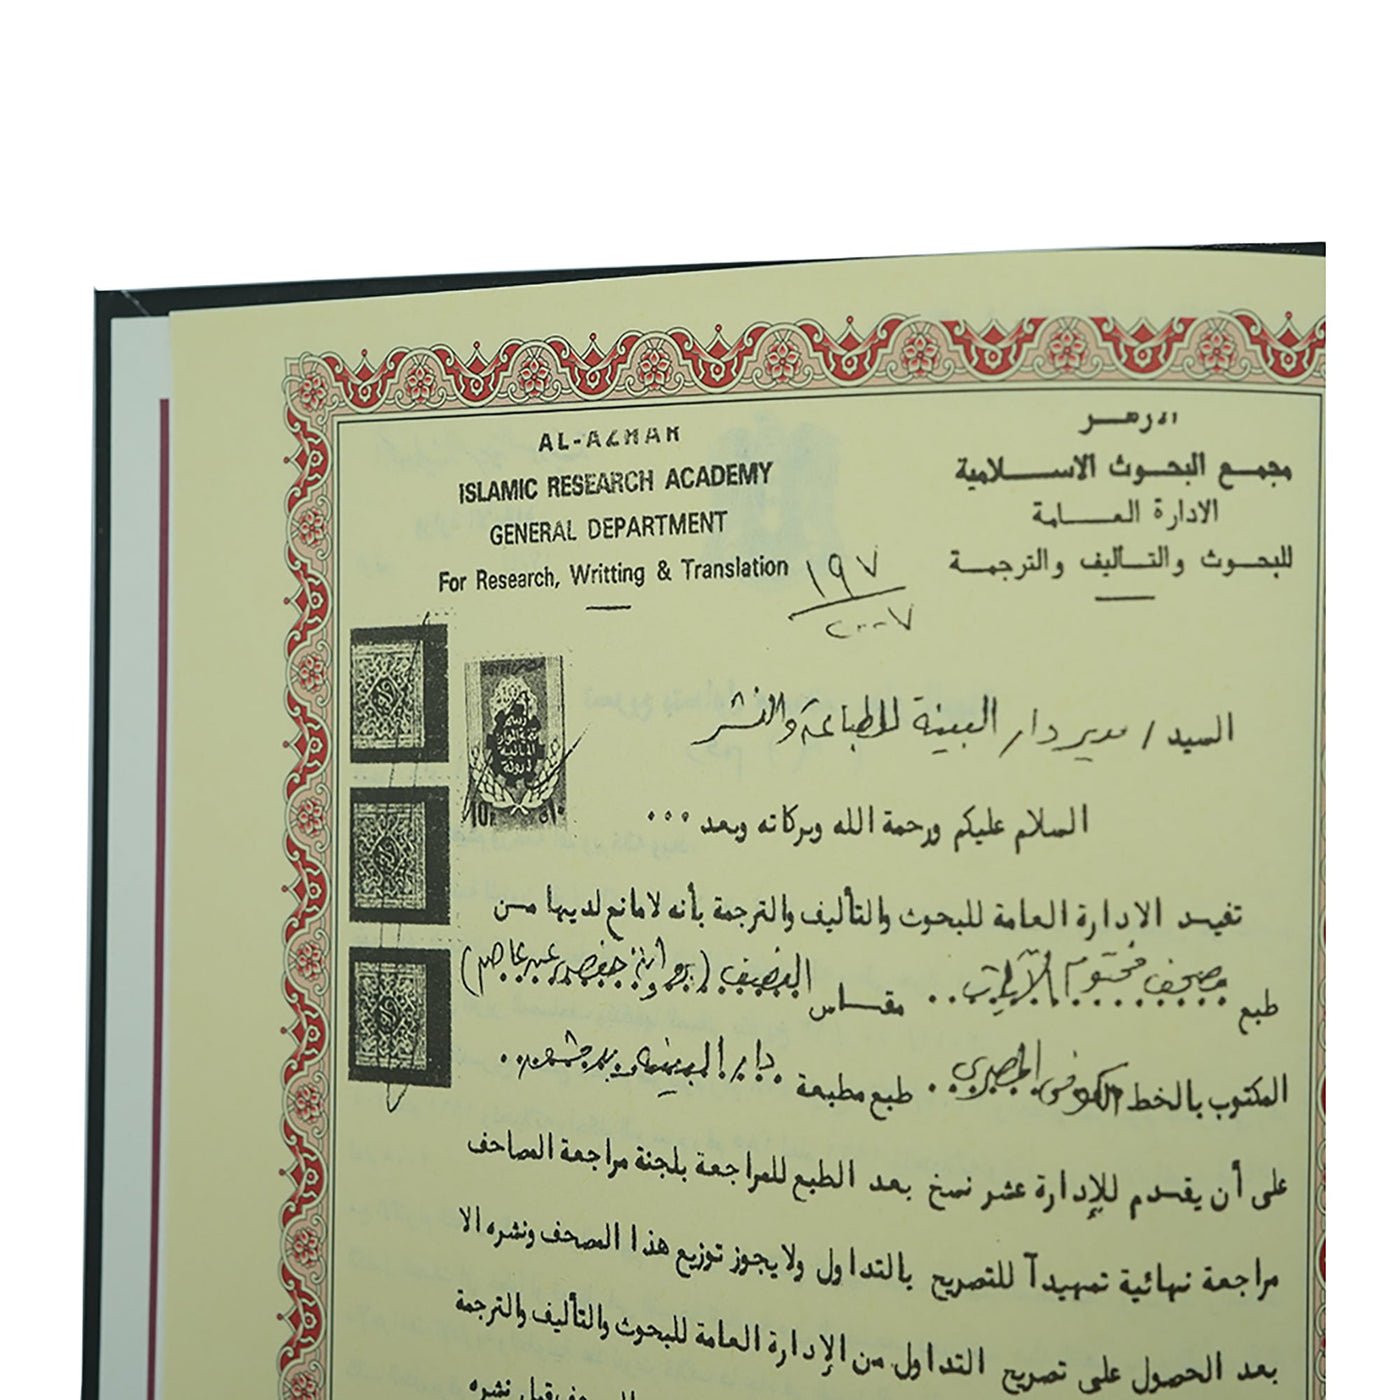 AL-AZHAR
ISLAMIC RESEARCH ACADEMY
GENERAL DEPARTMENT
For Research, Writting & Translation
الازهر
مجمع البحوث الاسلامية
الادارة العامة
للبحوث والتأليف والترجمة
١٩٧
٢٠٠٧
السيد / مدير دار البينة للطباعة والنشر
السلام عليكم ورحمة الله وبركاته وبعد ...
تفيد الإدارة العامة للبحوث والتأليف والترجمة بأنه لا مانع لديها من
طبع مصحف مختوم الآيات .. مقاس النصف (برواية حفص عن عاصم)
المكتوب بالخط الكوفى المصرى . طبع مطبعة دار البينة بدمشق ..
على أن يقدم للإدارة عشر نسخ بعد الطبع للمراجعة بلجنة مراجعة المصاحف
مراجعة نهائية تمهيدآ للتصريح بالتداول ولا يجوز توزيع هذا المصحف ونشره الا
بعد الحصول على تصريح التداول من الإدارة العامة للبحوث والتأليف والترجمة
قبل نشره